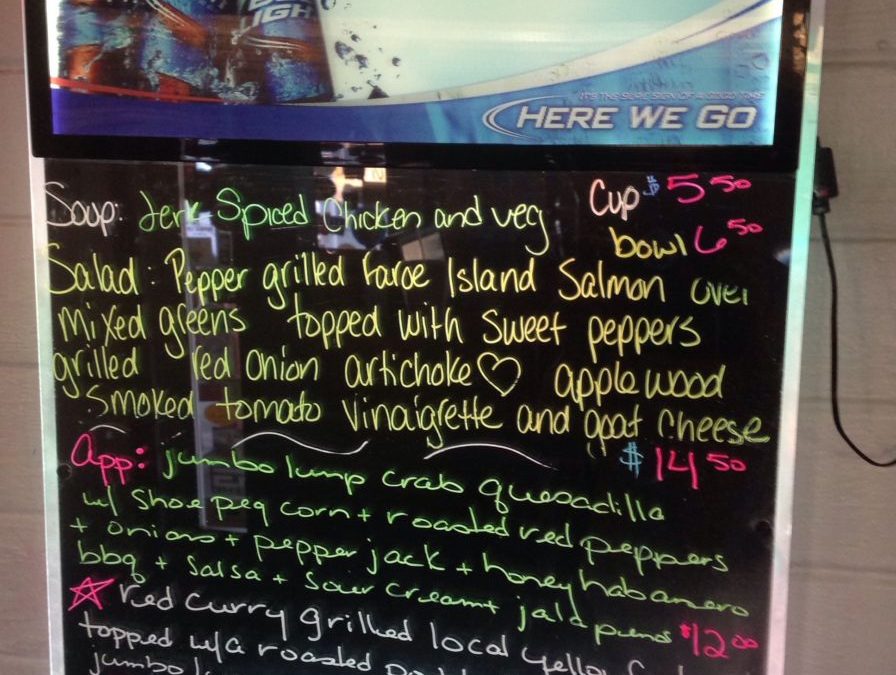 LIGHT
HERE WE GO
Soup: Jerk Spiced Chicken and veg Cup $5 50
bowl 6 50
Salad: Pepper grilled Faroe Island Salmon over
mixed greens topped with sweet peppers
grilled red onion artichoke♡ applewood
smoked tomato vinaigrette and goat cheese
$14 50
App: jumbo lump crab quesadilla
w/ shoe peg corn + roasted red peppers
+ onions + pepper jack + honey habanero
bbq + salsa + sour cream + jalapenos $12 00
☆ red curry grilled local yellow
topped w/a roasted
jumbo